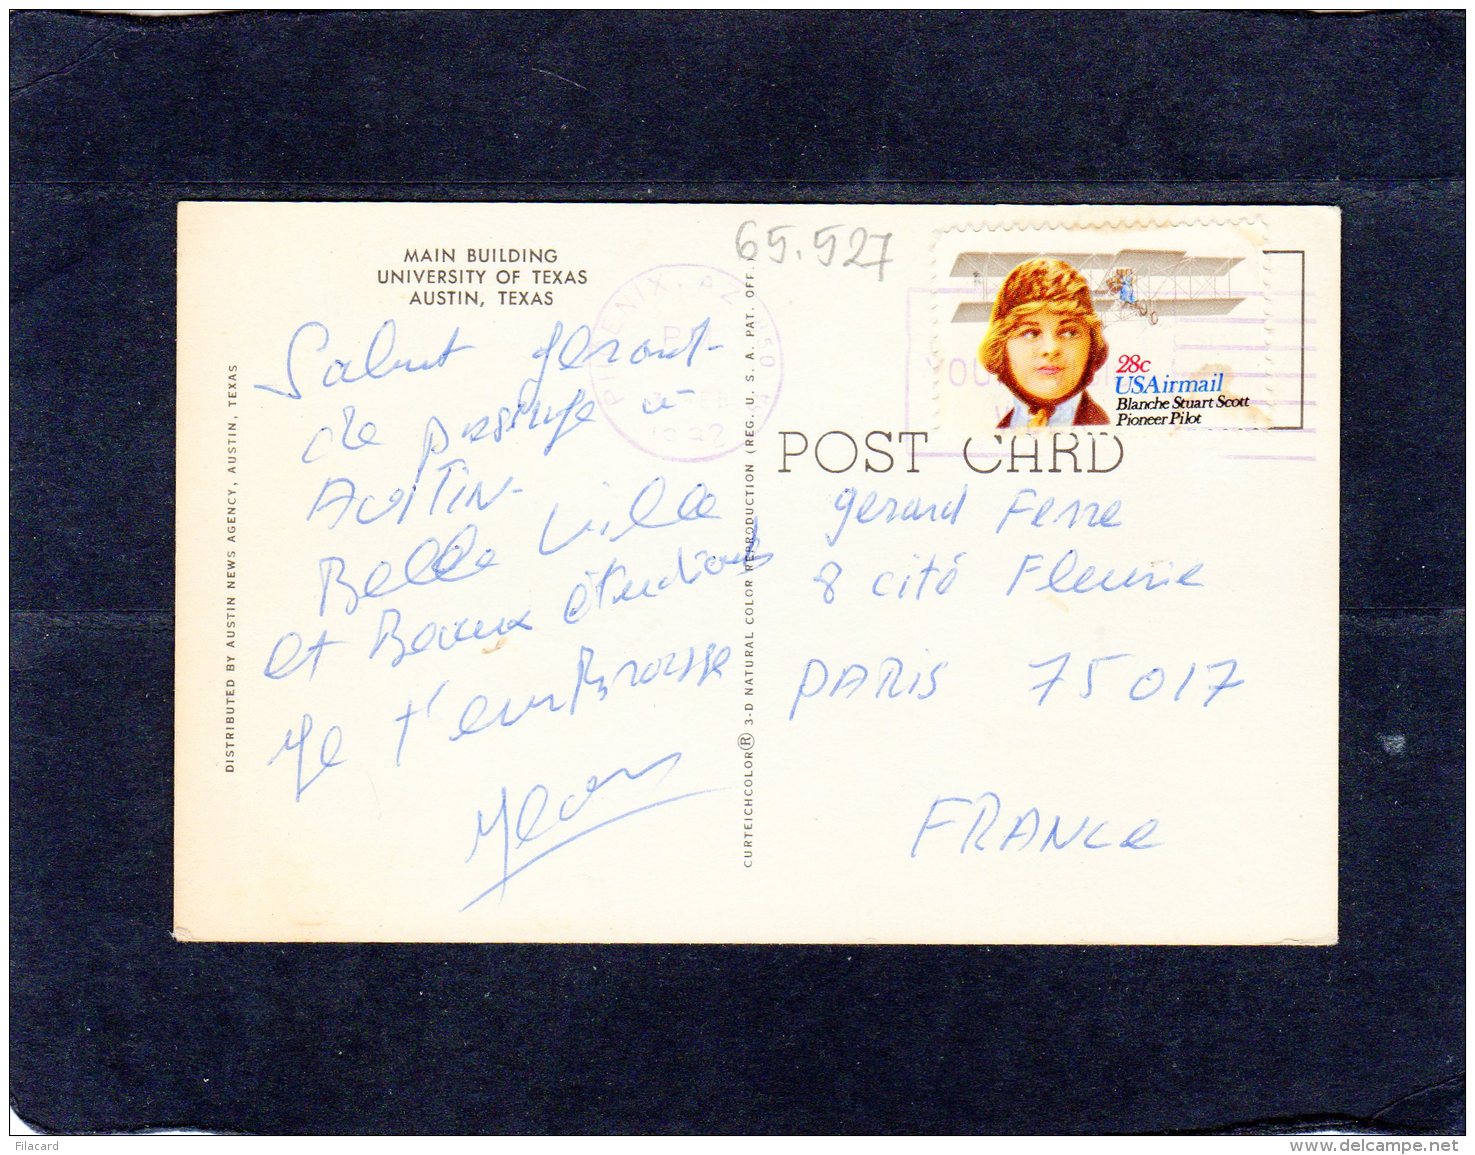 65.527
MAIN BUILDING
UNIVERSITY OF TEXAS
AUSTIN, TEXAS
Salut Gérard-
de passage à
AUSTIN-
Belle Ville
et Beaux étudiants
Je t'embrasse
Jean
DISTRIBUTED BY AUSTIN NEWS AGENCY, AUSTIN, TEXAS
CURTEICHCOLOR® 3-D NATURAL COLOR REPRODUCTION (REG. U. S. A. PAT. OFF.)
PHOENIX, AZ 850
PM
FEB
1982
YOU
28c
USAirmail
Blanche Stuart Scott
Pioneer Pilot
POST CARD
Gerard Ferre
8 cité Fleurie
PARIS 75017
FRANCE
Filacard
www.delcampe.net